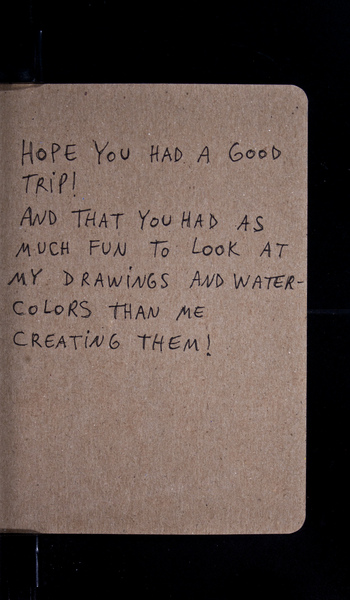 HOPE YOU HAD A GOOD
TRiP!
AND THAT YOU HAD AS
MUCH FUN TO LOOK AT
MY DRAWiNGS AND WATER-
COLORS THAN ME
CREATiNG THEM!